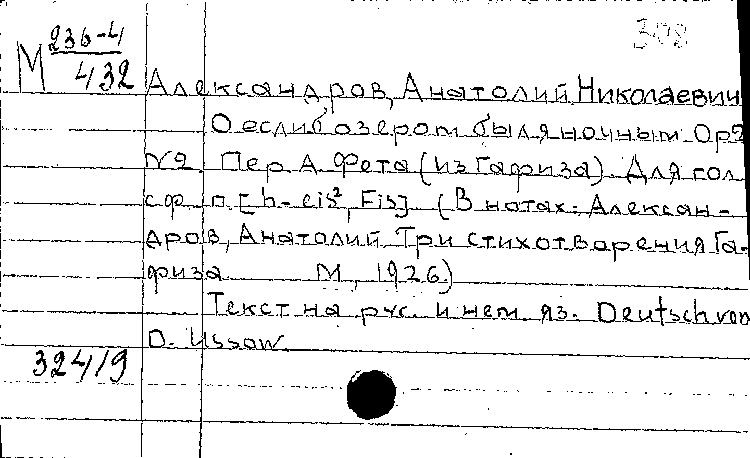 308
М 236-4
432
Александров, Анатолий Николаевич
О если б озером был я ночным Op2
N2. Пер. А. Фета (из Гафиза). Для гол
с ф.п. [h-cis², Fis] (В нотах: Алексан-
дров, Анатолий Три стихотворения Га-
физа М., 1926.)
Текст на рус. и нем. яз. Deutsch von
D. Ussow.
324/9